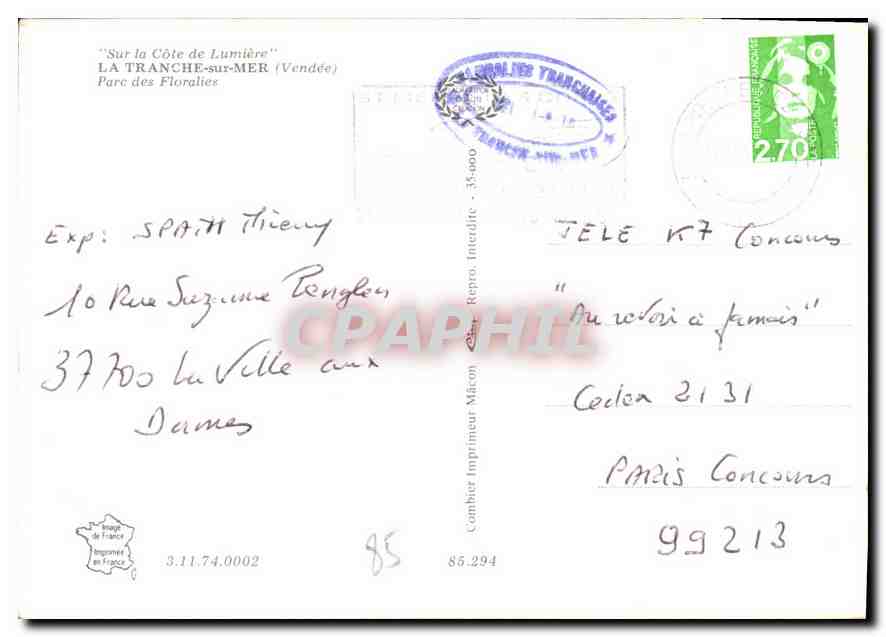 "Sur la Côte de Lumière"
LA TRANCHE-sur-MER (Vendée)
Parc des Floralies
FLORALIES TRANCHAISES
LA TRANCHE-SUR-MER
REPUBLIQUE FRANÇAISE
2,70
LA POSTE
Exp: SPAITH Thierry
10 Rue Suzanne Lenglen
37700 La Ville aux
Dames
Combier Imprimeur Mâcon Cim Repro. Interdite - 35-000
TELE K7 Concours
"Au revoir à Jamais"
Cedex 2131
PARIS Concours
99213
CPAPHIL
Image
de France
Imprimée
en France
3.11.74.0002
85
85.294